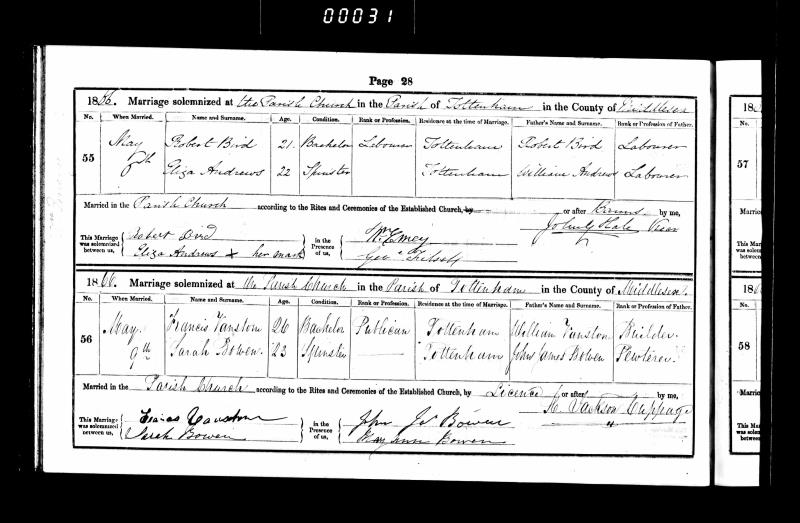 00031
Page 28
1866. Marriage solemnized at the Parish Church in the Parish of Tottenham in the County of Middlesex
No. When Married. Name and Surname. Age. Condition. Rank or Profession. Residence at the time of Marriage. Father's Name and Surname. Rank or Profession of Father.
55 May Robert Bird 21. Bachelor Labourer Tottenham Robert Bird Labourer
Eliza Andrews 22 Spinster Tottenham William Andrews Labourer
Married in the Parish Church according to the Rites and Ceremonies of the Established Church, by or after Banns by me,
This Marriage was solemnized between us, Robert Bird in the Presence of us, Wm Emey John G Hale Vicar
Eliza Andrews x her mark Geo
1866. Marriage solemnized at the Parish Church in the Parish of Tottenham in the County of Middlesex.
No. When Married. Name and Surname. Age. Condition. Rank or Profession. Residence at the time of Marriage. Father's Name and Surname. Rank or Profession of Father.
56 May Francis Vanston 26 Bachelor Publican Tottenham William Vanston Builder.
9th Sarah Bowen. 23 Spinster Tottenham John James Bowen Pewterer.
Married in the Parish Church according to the Rites and Ceremonies of the Established Church, by Licence or after by me,
This Marriage was solemnized between us, Francis Vanston in the Presence of us, John Js Bowen H. Jackson Cuppage
Sarah Bowen Mary Ann Bowen "
18
No.
57
Married
This Marriage was solemnized between us,
18
No.
58
Married
This was so betw